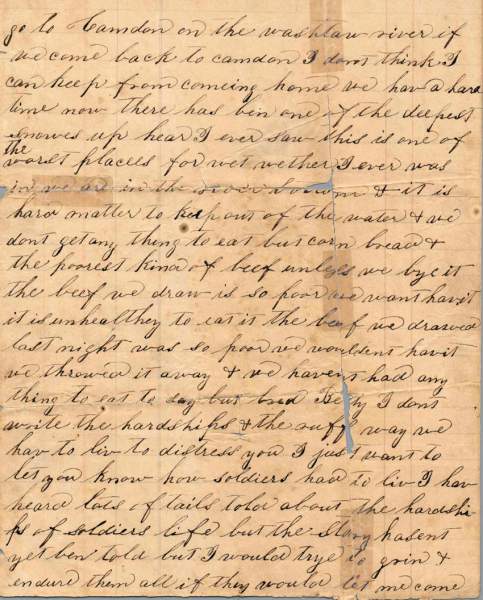 go to Camdon on the washtaw river if
we come back to camdon I dont think I
can keep from comeing home we hav a hard
time now there has bin one of the deepest
snowes up hear I ever saw this is one of
the
worst placees for wet wether I ever was
in we are in the river & it is
hard matter to keep out of the water & we
dont get any thing to eat but corn bread &
the poorest kind of beef unless we bye it
the beef we draw is so poor we want hav it
it is unhealthey to eat it the beef we drawed
last night was so poor we woulsent hav it
we throwed it away & we havent had any
thing to eat to day but bred Betty I dont
write the hardships & the ruff way we
hav to liv to distress you I just want to
let you know how soldiers had to liv I hav
heard lots of tails told about the hardshi
ps of soldiers life but the story hasent
yet ben told but I would trye to grin &
endure them all if they would let me come